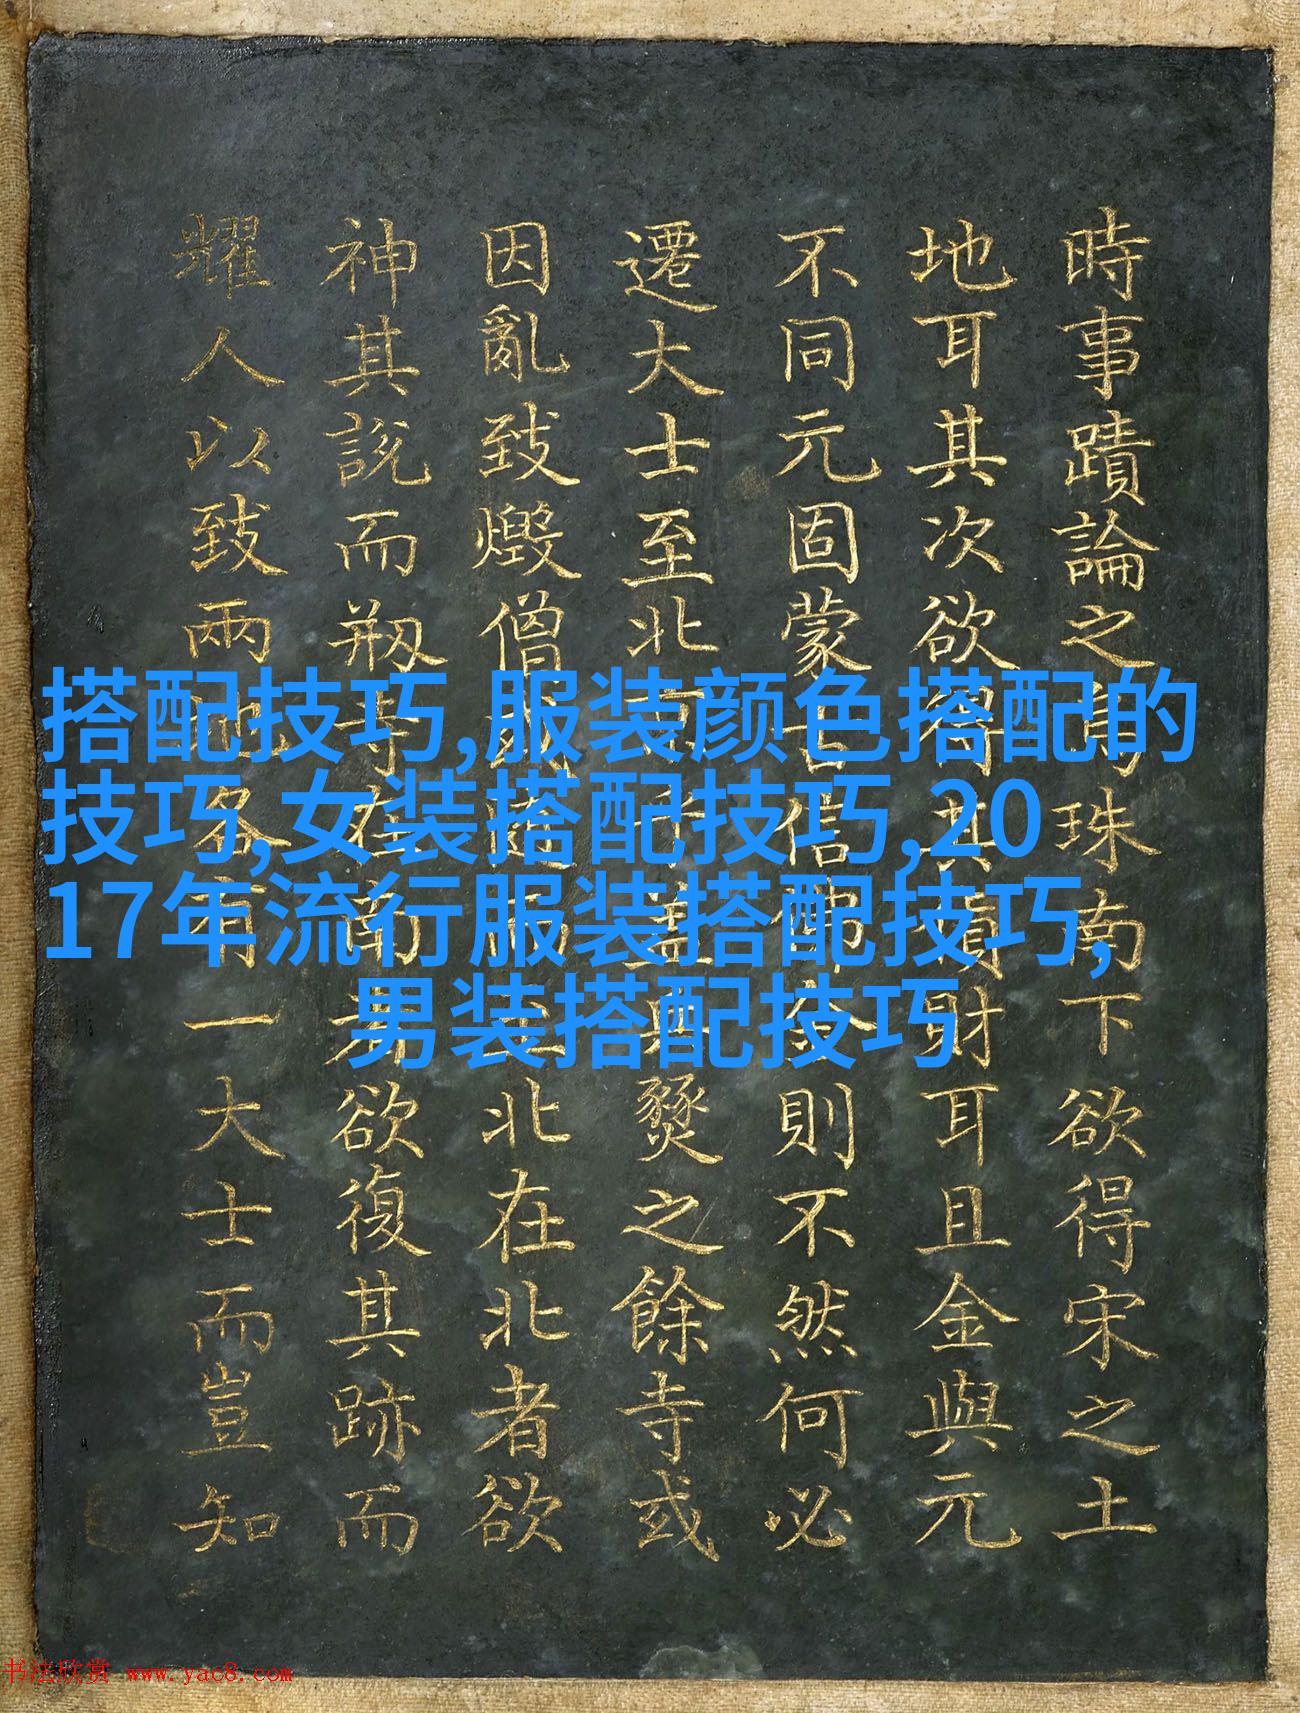 搭配技巧,服装颜色搭配的
技巧,女装搭配技巧,20
17年流行服装搭配技巧,
男装搭配技巧
時事蹟論之珠南下欲得宋之土
地耳其次欲得其財耳且金與元
不同元固蒙古信佛則不然何必
遷大士至北京乎蓋兵燹之餘寺或
因亂致燬僧或北在北者欲
神其說而剏在南者欲復其跡而
耀人以致兩地各有一大士而豈知
书法欣赏 www.yac8.com